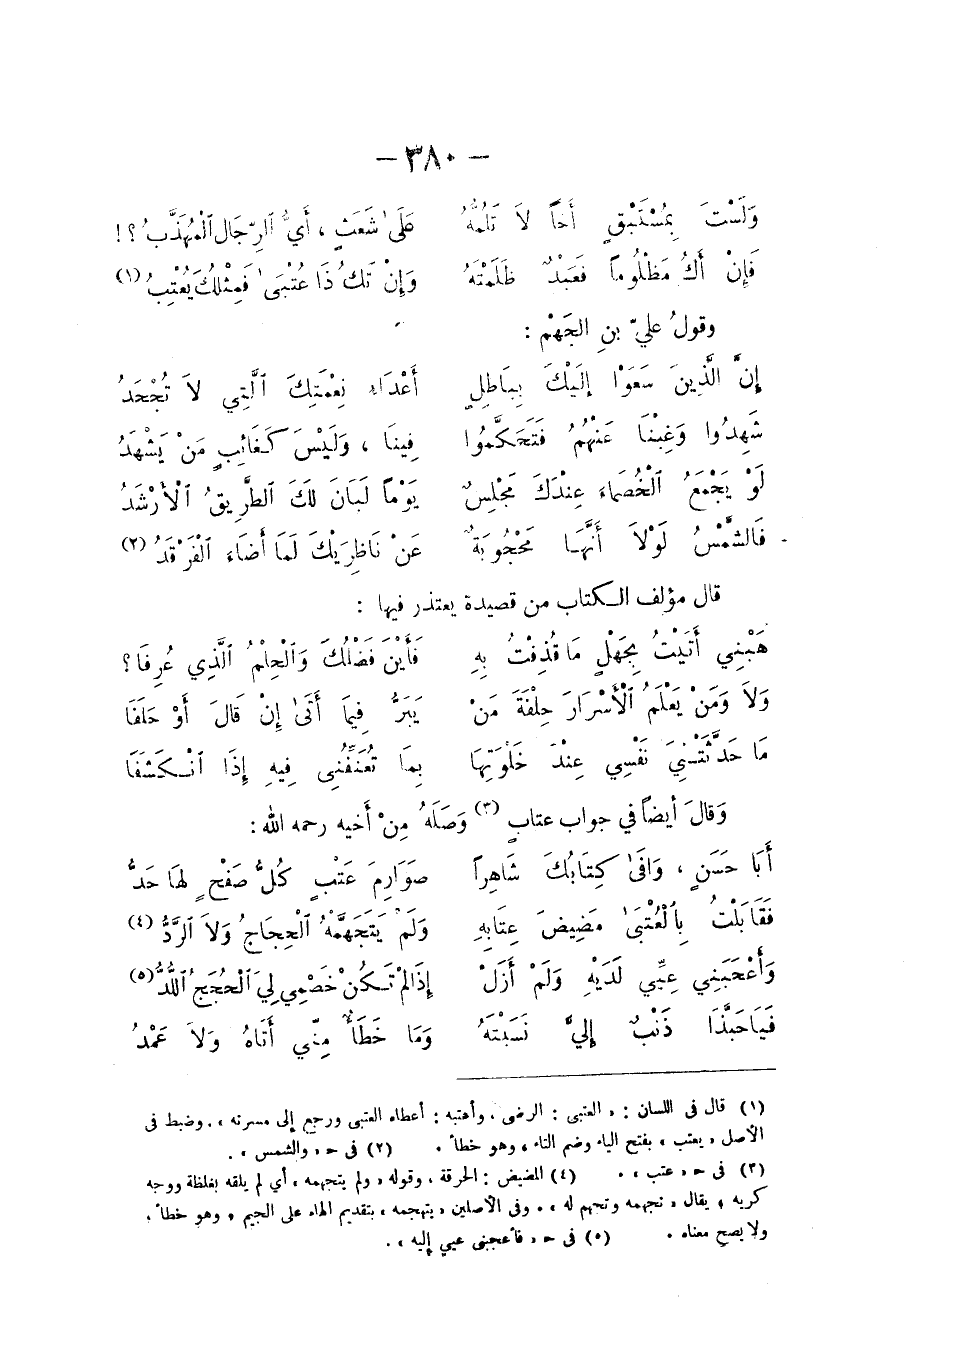 — ٣٨٠ —
وَلَسْتَ بِمُسْتَبْقٍ أَخاً لاَ تَلُمُّهُ عَلَىٰ شَعَثٍ ، أَيُّ ٱلرِّجَالِ ٱلْمُهَذَّبُ ؟ !
فَإِنْ أَكُ مَظْلُوماً فَعَبْدٌ ظَلَمْتَهُ وَإِنْ تَكُ ذَا عُتْبَىٰ فَمِثْلُكَ يُعْتِبُ (١)
وقولُ عليّ بنِ الجَهْمِ :
إِنَّ الَّذِينَ سَعَوْا إِلَيْكَ بِبَاطِلٍ أَعْدَاءُ نِعْمَتِكَ ٱلَّتِي لاَ تُجْحَدُ
شَهِدُوا وَغِبْنَا عَنْهُمُ فَتَحَكَّمُوا فِينَا ، وَلَيْسَ كَغَائِبٍ مَنْ يَشْهَدُ
لَوْ يَجْمَعُ ٱلْخُصَمَاءَ عِنْدَكَ مَجْلِسٌ يَوْماً لَبَانَ لَكَ ٱلطَّرِيقُ ٱلْأَرْشَدُ
فَالشَّمْسُ لَوْلاَ أَنَّهَا مَحْجُوبَةٌ عَنْ نَاظِرَيْكَ لَمَا أَضَاءَ ٱلفَرْقَدُ (٢)
قال مؤلف الكتاب من قصيدة يعتذر فيها :
هَبْنِي أَتَيْتُ بِجَهْلٍ مَا قُذِفْتُ بِهِ فَأَيْنَ فَضْلُكَ وَٱلْحِلْمُ ٱلَّذِي عُرِفَا ؟
وَلاَ وَمَنْ يَعْلَمُ ٱلْأَسْرَارَ حِلْفَةَ مَنْ يَبَرُّ فِيمَا أَتَىٰ إِنْ قَالَ أَوْ حَلَفَا
مَا حَدَّثَتْنِيَ نَفْسِي عِنْدَ خَلْوَتِهَا بِمَا تُعَنِّفُنِي فِيهِ إِذَا ٱنْكَشَفَا
وَقالَ أيضاً في جواب عتابٍ (٣) وَصَلَهُ مِنْ أَخيه رحمه الله :
أَبَا حَسَنٍ ، وَافَىٰ كِتَابُكَ شَاهِراً صَوَارِمَ عَتْبٍ كُلُّ صَفْحٍ لهَا حَدُّ
فَقَابَلْتُ بِٱلْعُتْبَىٰ مَضِيضَ عِتَابِهِ وَلَمْ يَتَجَهَّمْهُ ٱلْحِجَاجُ وَلاَ ٱلرَّدُّ (٤)
وَأَعْجَبَنِي عِيِّي لَدَيْهِ وَلَمْ أَزَلْ إِذَالَمْ تَكُنْ خَصْمِي لِيَ ٱلْحُجَجُ ٱللُّدُّ (٥)
فَيَاحَبَّذَا ذَنْبٌ إِلَيَّ نَسَبْتَهُ وَمَا خَطَأٌ مِنِّي أَتَاهُ وَلاَ عَمْدُ
(١) قال فى اللسان : « العتبى : الرضى ، وأعتبه : أعطاه العتبى ورجع إلى مسرته » . وضبط فى
الأصل « يعتب » بفتح الياء وضم التاء ، وهو خطأ . (٢) فى ح « والشمس » .
(٣) فى ح « عتب » . (٤) المضيض : الحرقة ، وقوله « ولم يتجهمه » أي لم يلقه بغلظة ووجه
كريه ؛ يقال « تجهمه وتجهم له » . وفى الأصلين « يتهجمه » بتقديم الهاء على الجيم ، وهو خطأ ،
ولا يصح معناه . (٥) فى ح « فأعجبنى عيي إليه » .